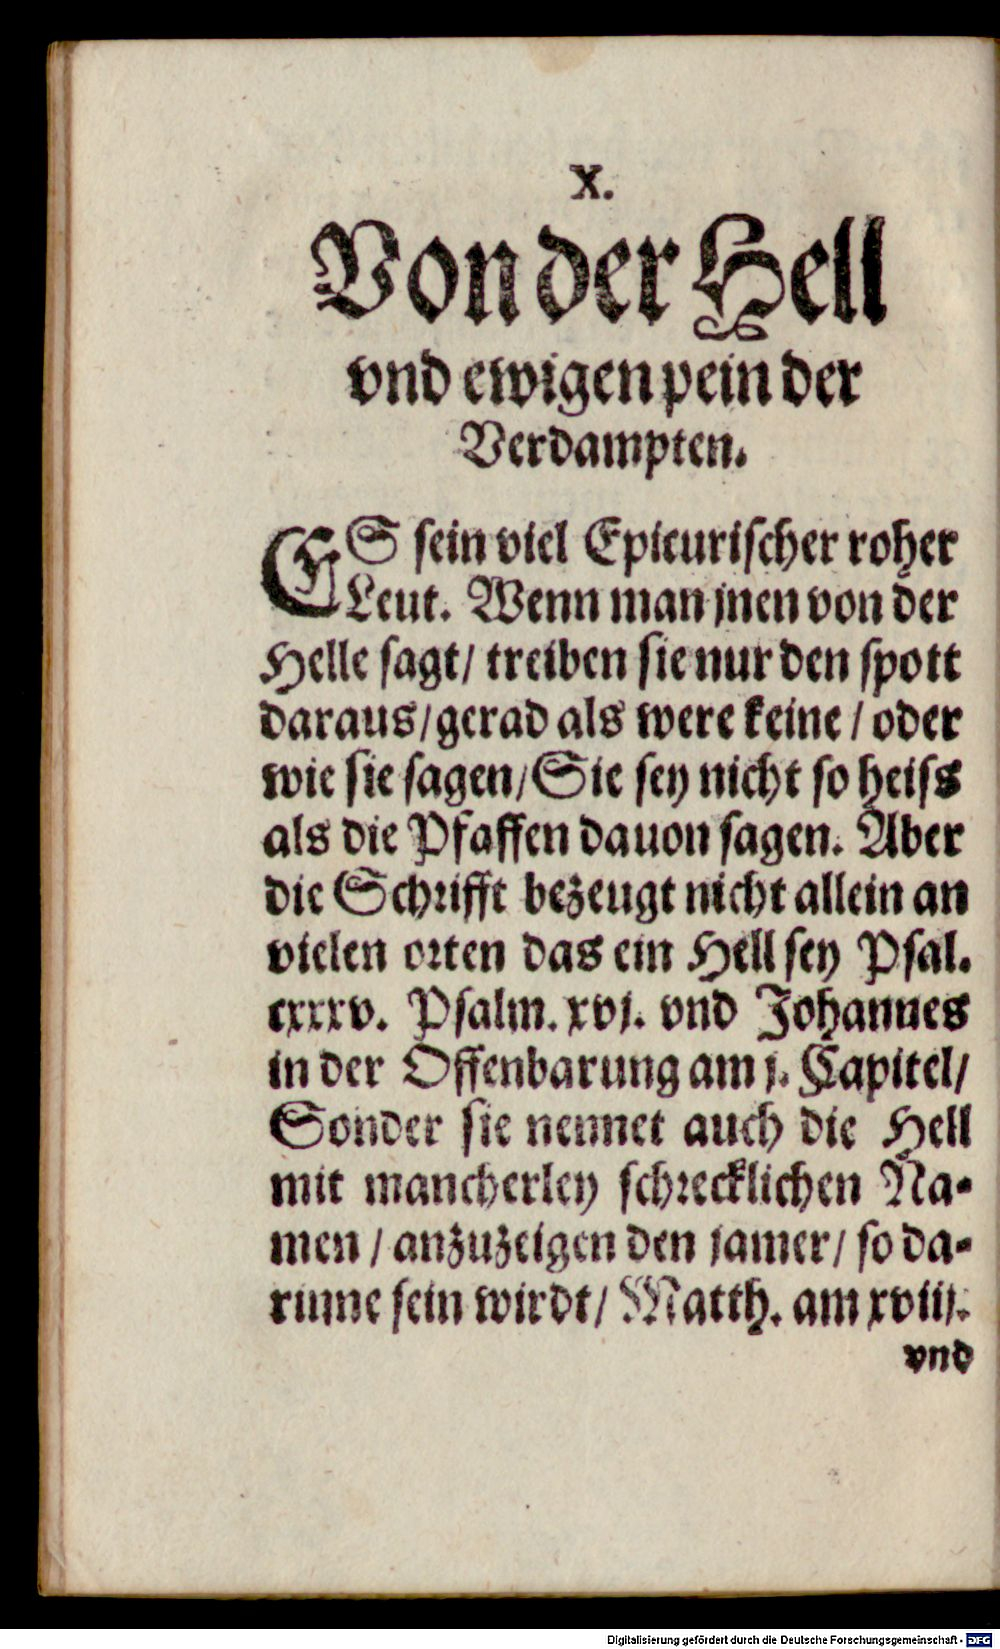 X.
Von der Hell
vnd ewigen pein der
Verdampten.
ES sein viel Epicurischer roher
Leut. Wenn man jnen von der
Helle sagt/ treiben sie nur den spott
daraus/ gerad als were keine / oder
wie sie sagen/ Sie sey nicht so heiss
als die Pfaffen dauon sagen. Aber
die Schrifft bezeugt nicht allein an
vielen orten das ein Hell sey Psal.
cxxxv. Psalm. xvj. vnd Johannes
in der Offenbarung am j. Capitel/
Sonder sie nennet auch die Hell
mit mancherley schrecklichen Na-
men / anzuzeigen den jamer/ so da-
rinne sein wirdt/ Matth. am xviij.
vnd
Digitalisierung gefördert durch die Deutsche Forschungsgemeinschaft - DFG